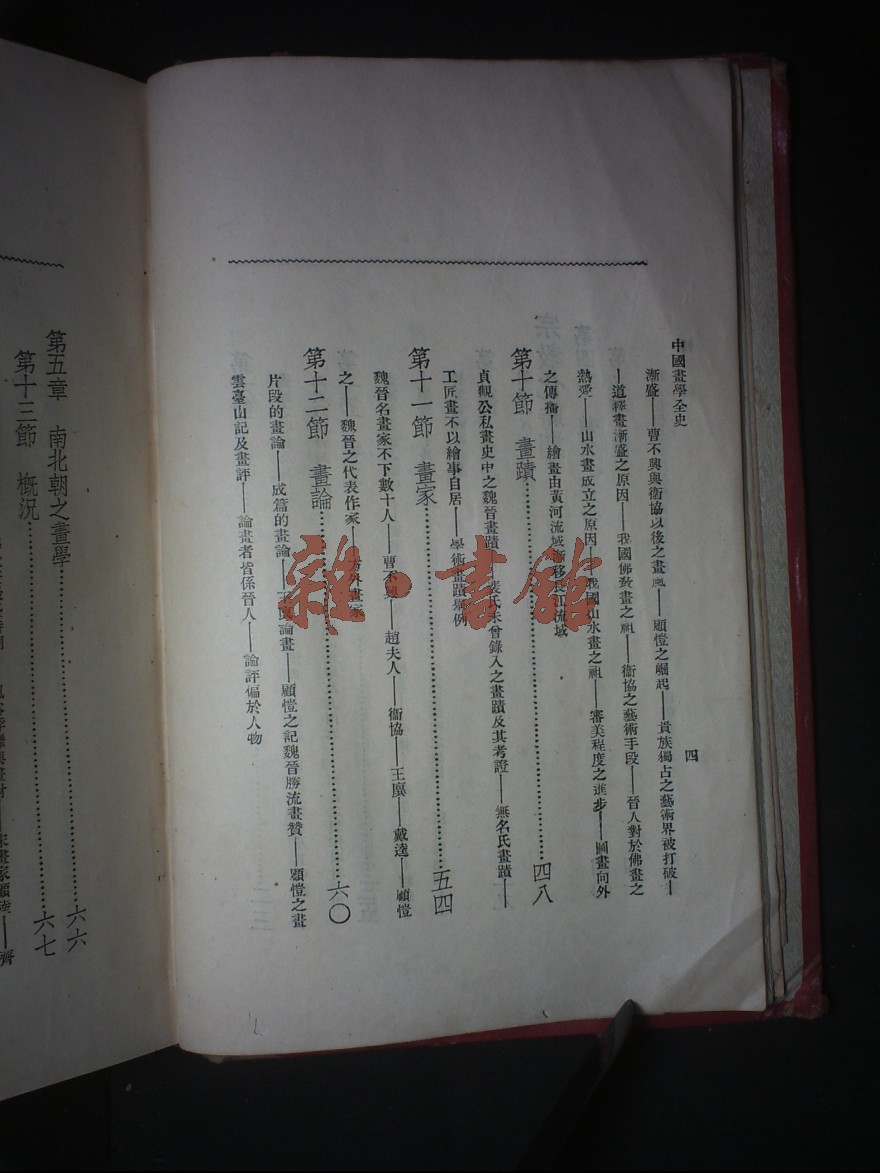 中國畫學全史
四
漸盛——曹不興與衞協以後之畫風——顧愷之崛起——貴族獨占之藝術界被打破—
—道釋畫漸盛之原因——我國佛敎畫之祖——衞協之藝術手段——晉人對於佛畫之
熱愛——山水畫成立之原因——我國山水畫之祖——審美程度之進步——圖畫向外
之傳播——繪畫由黃河流域漸移長江流域
第十節　畫蹟……四八
貞觀公私畫史中之魏晉畫蹟——裴氏未曾錄入之畫蹟及其考證——無名氏畫蹟——
工匠畫不以繪事自居——學術畫蹟舉例
第十一節　畫家……五四
魏晉名畫家不下數十人——曹不興——趙夫人——衞協——王廙——戴逵——顧愷
之——魏晉之代表作家——方外畫家
第十二節　畫論……六〇
片段的畫論——成篇的畫論——王廙論畫——顧愷之記魏晉勝流畫贊——顧愷之畫
雲臺山記及畫評——論畫者皆係晉人——論評偏於人物
第五章　南北朝之畫學……六六
第十三節　概況……六七
雜·書館